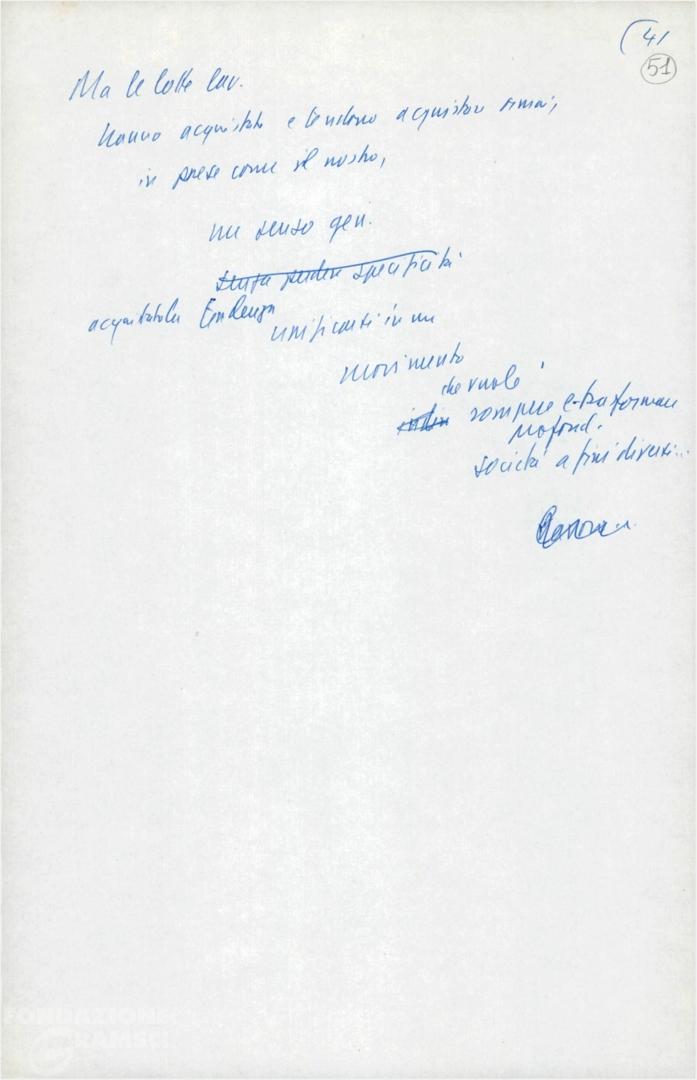 (41
51
Ma le lotte lav.
hanno acquistato e tendono acquistare ormai,
in paese come il nostro,
un senso gen.
senza perdere specificità
acquistato la tendenza
unificarsi in un
movimento
che vuole
rompere e trasformare
profond.
società a fini diversi...
FONDAZIONE
GRAMSCI